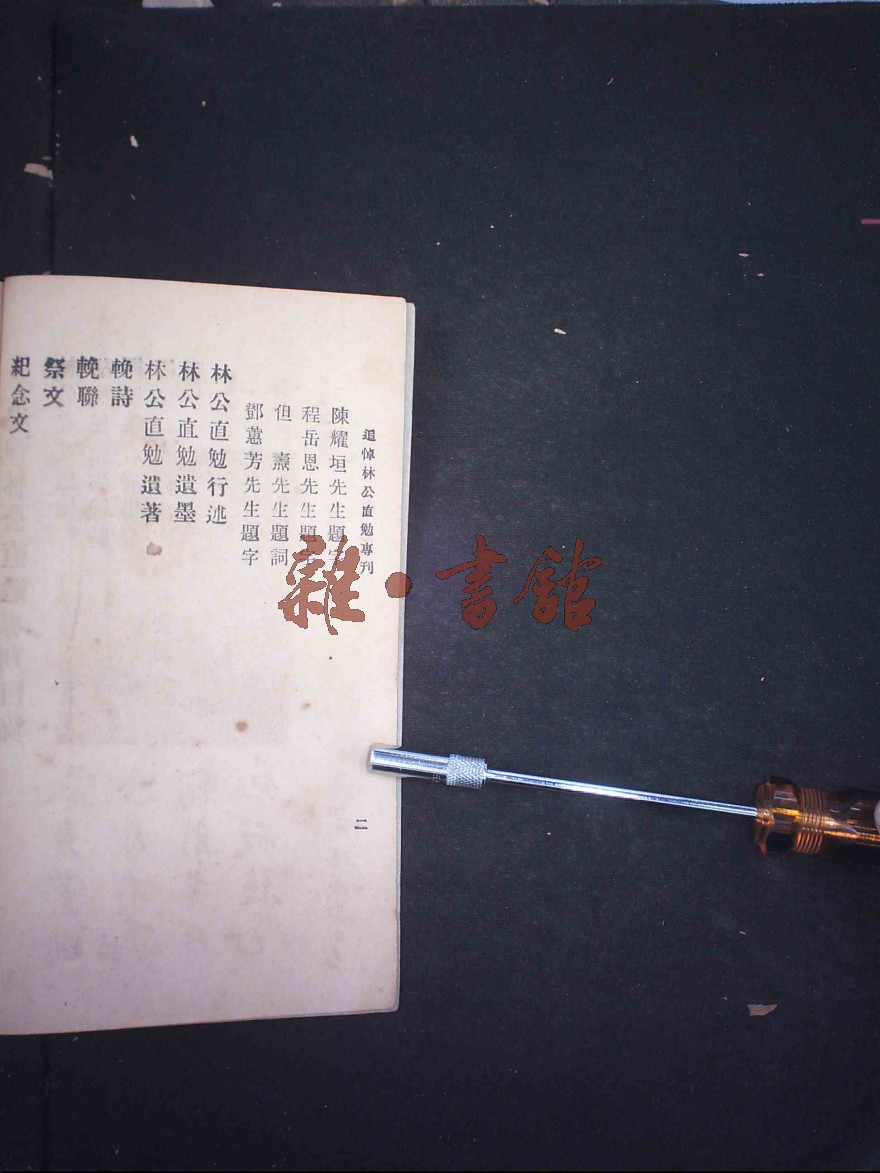 追悼林公直勉專刊
陳耀垣先生題字
程岳恩先生題
但 燾先生題詞
鄧蕙芳先生題字
林公直勉行述
林公直勉遺墨
林公直勉遺著
輓詩
輓聯
祭文
紀念文
二
雜·書館